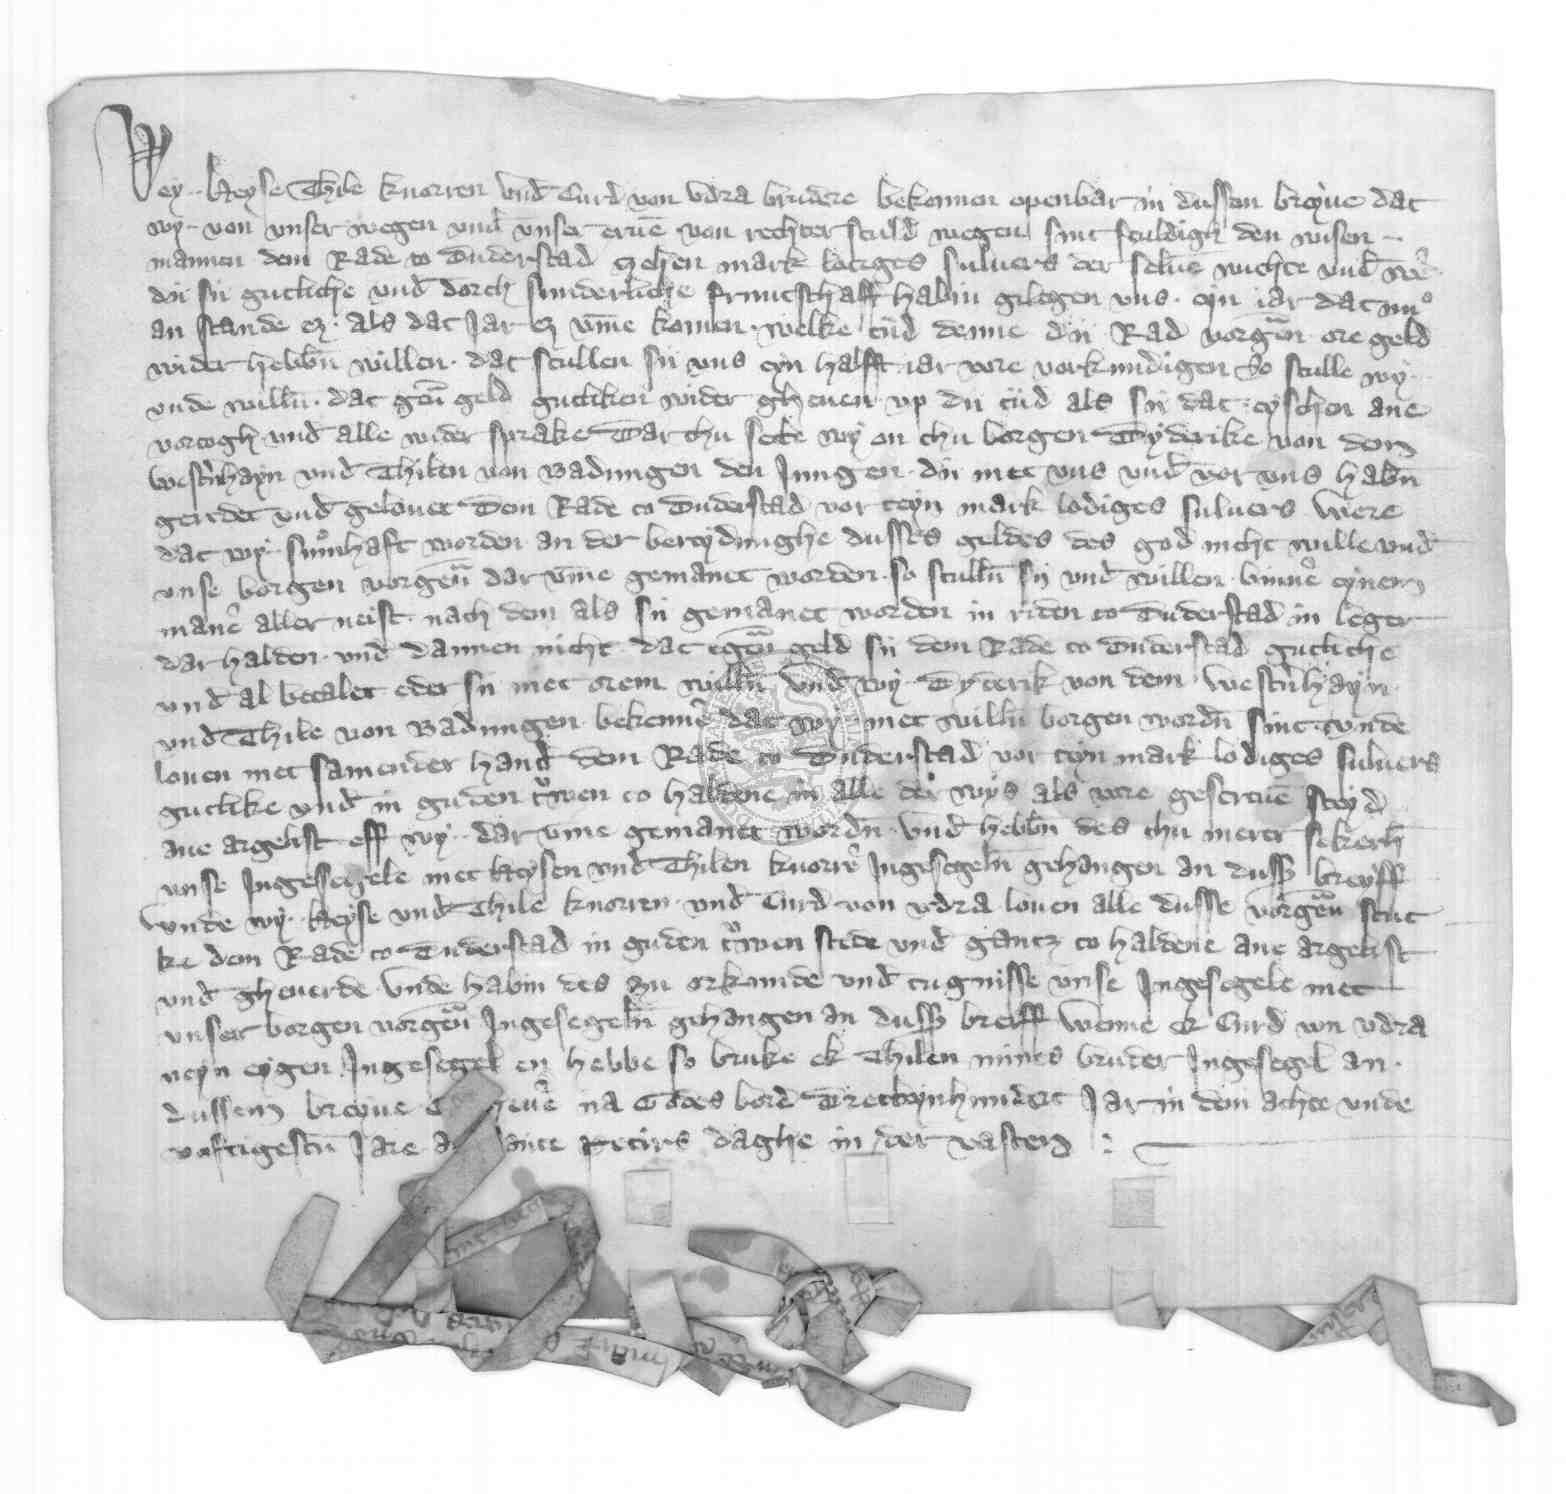 Wey ·· Heyse Thile knorren vnd Curd von vdra brudere bekennen openbar in dussen breyue dat
wy ·· von vnser wegen vnd vnser eruē von rechter sculd wegen sint sculdigh den wisen ··
mannen dem Rade to Duderstad czehen mark lotiges suluers der seluē wichte vnd
dii sii gutliche vnd dorch sunderliche fruntschaff habin gelegen vns · eyn iar dat nu
an stande ez · als dat Jar ez vm̄e komen · welke tiid denne dii Rad vorgn̄ · ore geld
wider hebbn̄ willen · dat scullen sii vns eyn halfft iar vore vorkundigen So sculle wy ··
vnde willn̄ · dat gen̄ geld gutliken wider gheuen vp dii tiid als sii dat eyschen ane
vortogh vnd alle wider sprake Dar thu sette wy on thu borgen Tyderike von dem
westn̄hayn vnd Thilen von Badungen den Jungen · dii met vns vnd vor vns habn̄
geredet vnd gelouet Dem Rade to Duderstad vor teyn mark lodiges suluers Were
dat wy · sumhaft worden an der betydinghe dusses geldes des god nicht wille vnd
vnse borgen vorgen̄ dar vm̄e gemanet worden · so sculln̄ sii vnd willen · binnē eynem
manē aller neist · nach dem als sii gemanet worden in riden to Duderstad in leger
dar halden · vnd dannen nicht dat egen̄ geld sii dem Rade to Duderstad gutliche
vnd al betalet eder sii met orem willn̄ Vnd wy · Dyterik von dem westn̄hayn
vnd Thile von Badungen bekennē dat wy · met willn̄ borgen wordn̄ sint · vnde
louen met samender hand dem Rade to Duderstad vor teyn mark lodiges suluers
gutlike vnd in guden trwen to haldene in alle der wys als vore gescreuē steyd
ane argelist eff wy ·· dar vm̄e gemanet wordn̄ · vnd hebbn̄ des thu merer sekerh̄
vnse Ingesegele met Heysen vnd Thilen knorrē Ingesegeln̄ gehangen an duss breyff
Vnde wy ·· Heyse vnd Thile knorren · vnd Curd von vdra louen alle dusse vorgen̄ stuc
ke dem Rade to Duderstad in guden trwen stede vnd gantz to haldene ane argelist
vnd gheuerde Vnde habin des zu orkunde vnd tugnisse vnse Ingesegele met
vnser borgen vorgen̄ Ingesegeln̄ gehangen an duss breiff Wenne ek Curd von vdra
neyn eygen Ingesegel en hebbe so bruke ek Thilen mines bruder Ingesegel an ·
dussem breyue na Godes bord Dretteynhundert Jar in dem achte vnde
vefftigesten Jare sante Petirs daghe in der vasten